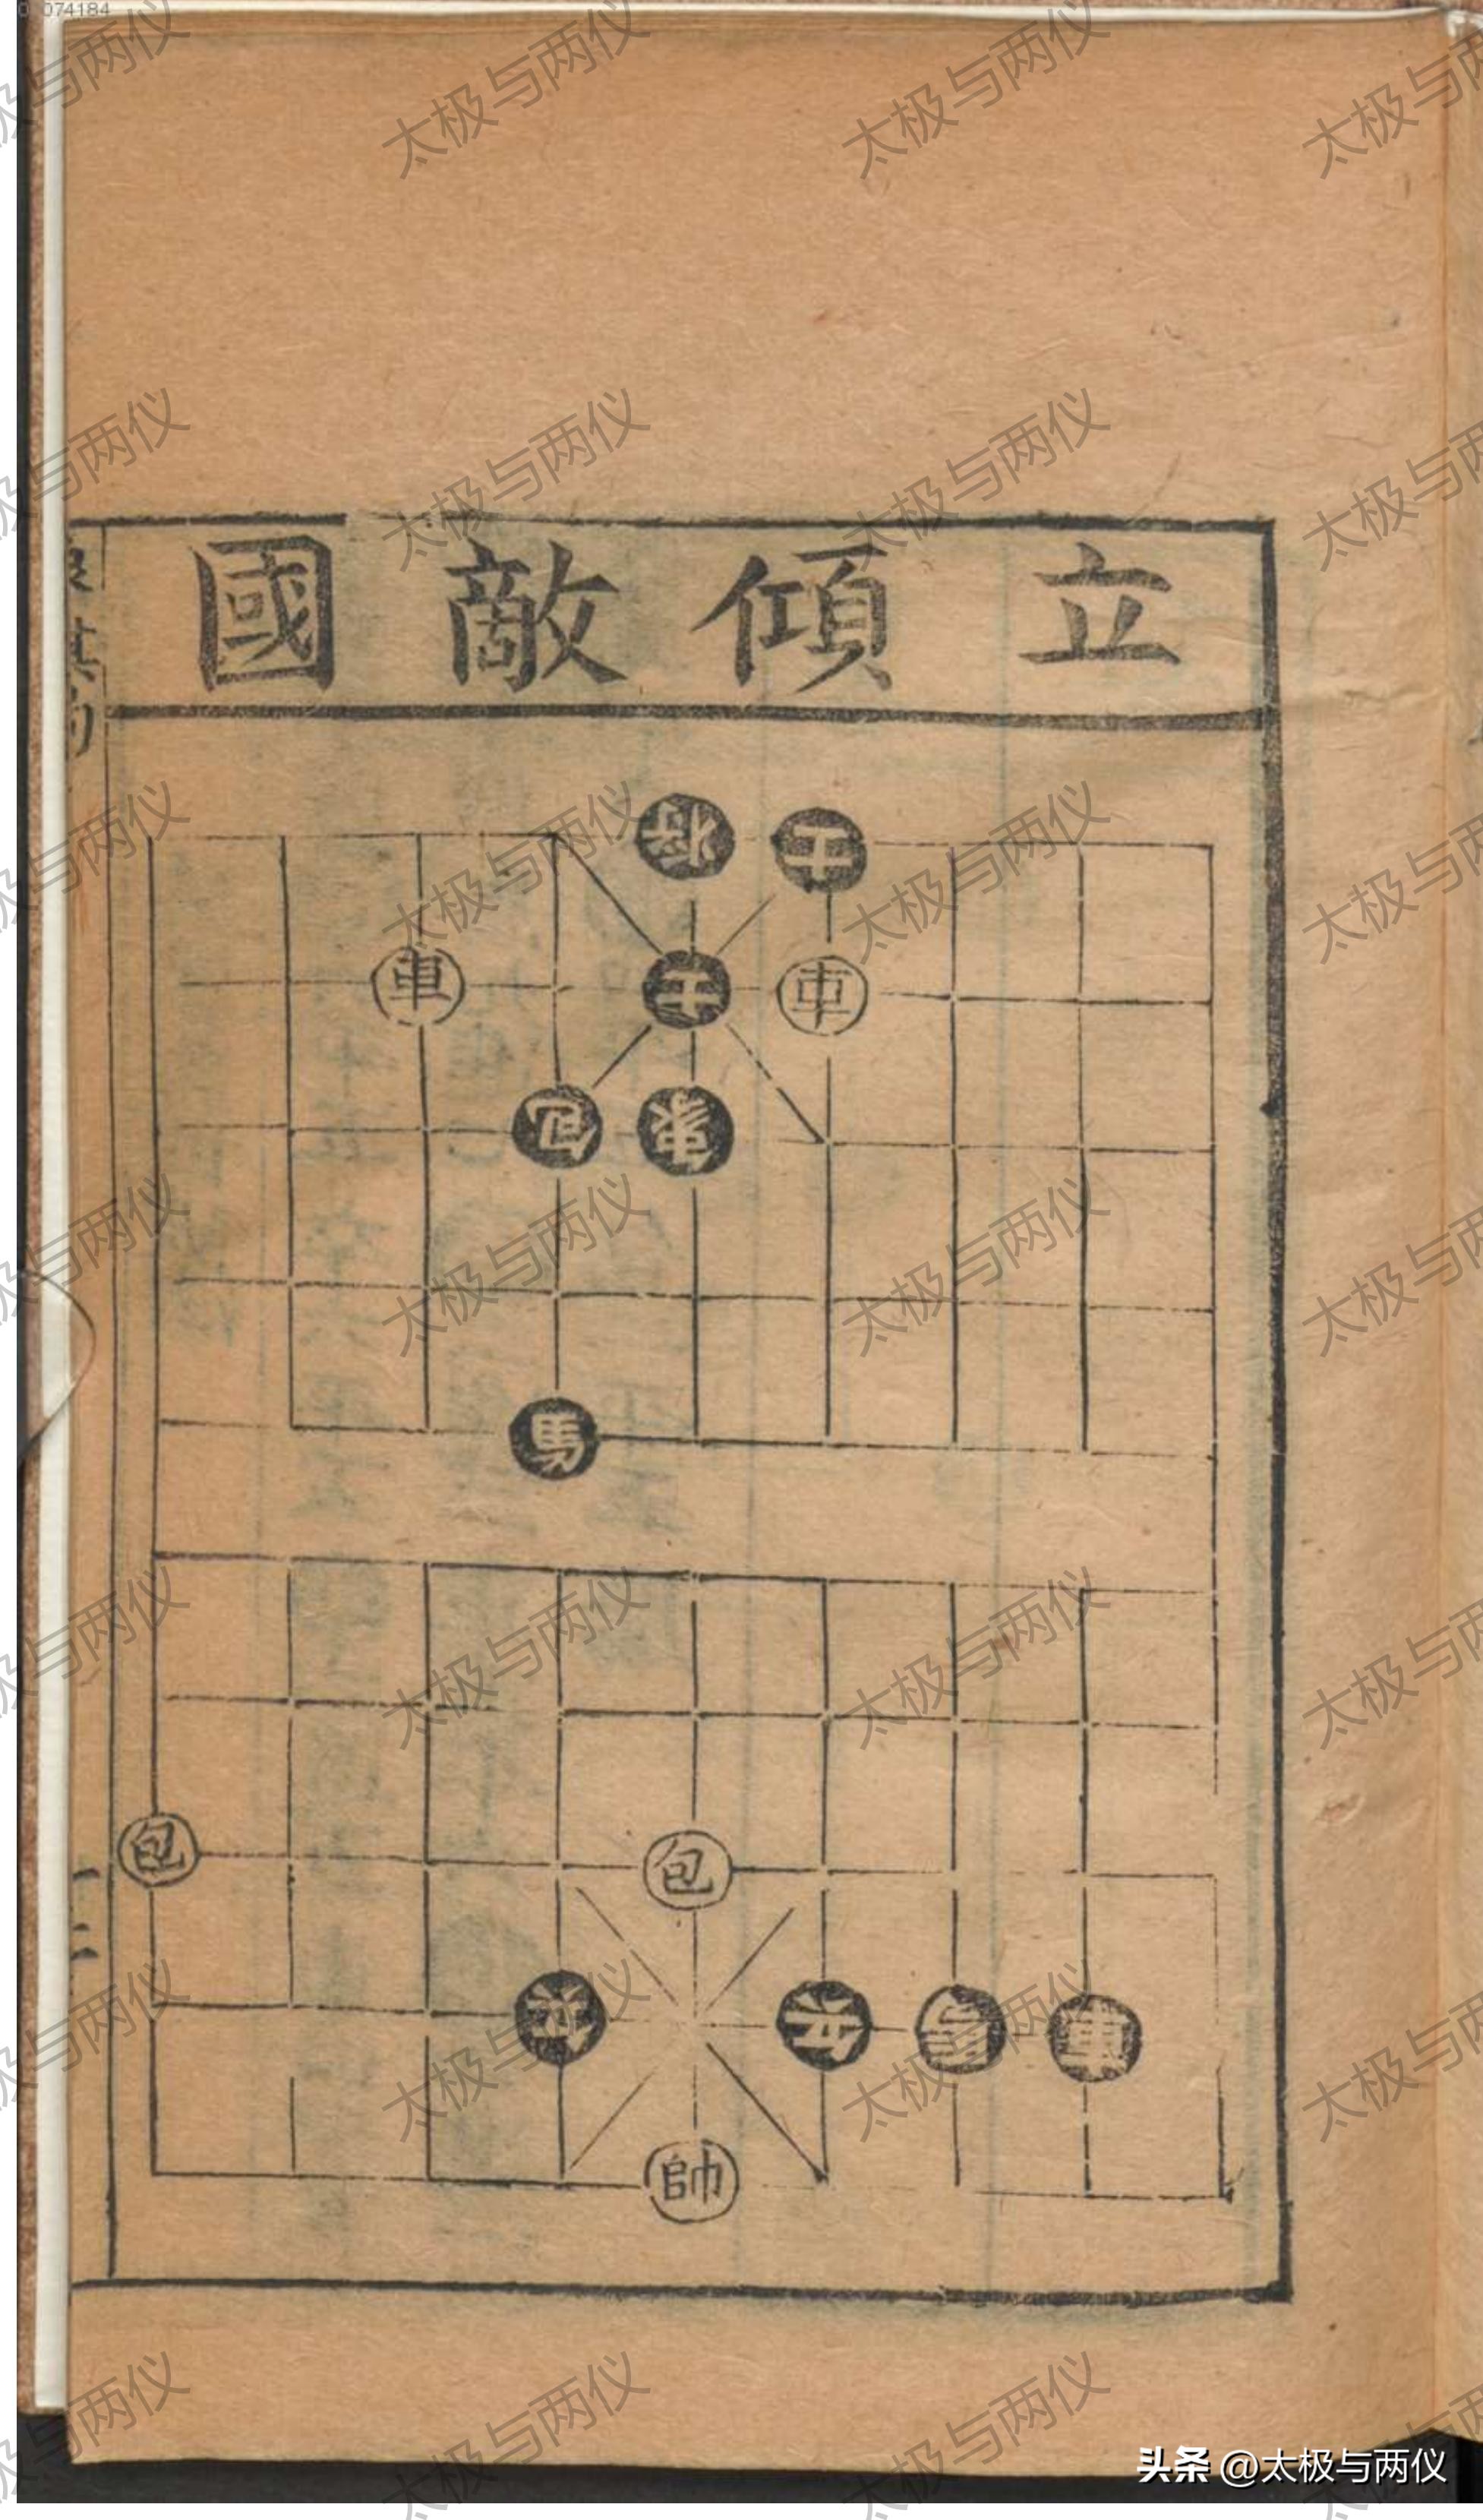 074184
立傾敵國
将 士
車 士 車
包 象
馬
包 包
卒 卒 車
帥
十二
太极与两仪
头条 @太极与两仪